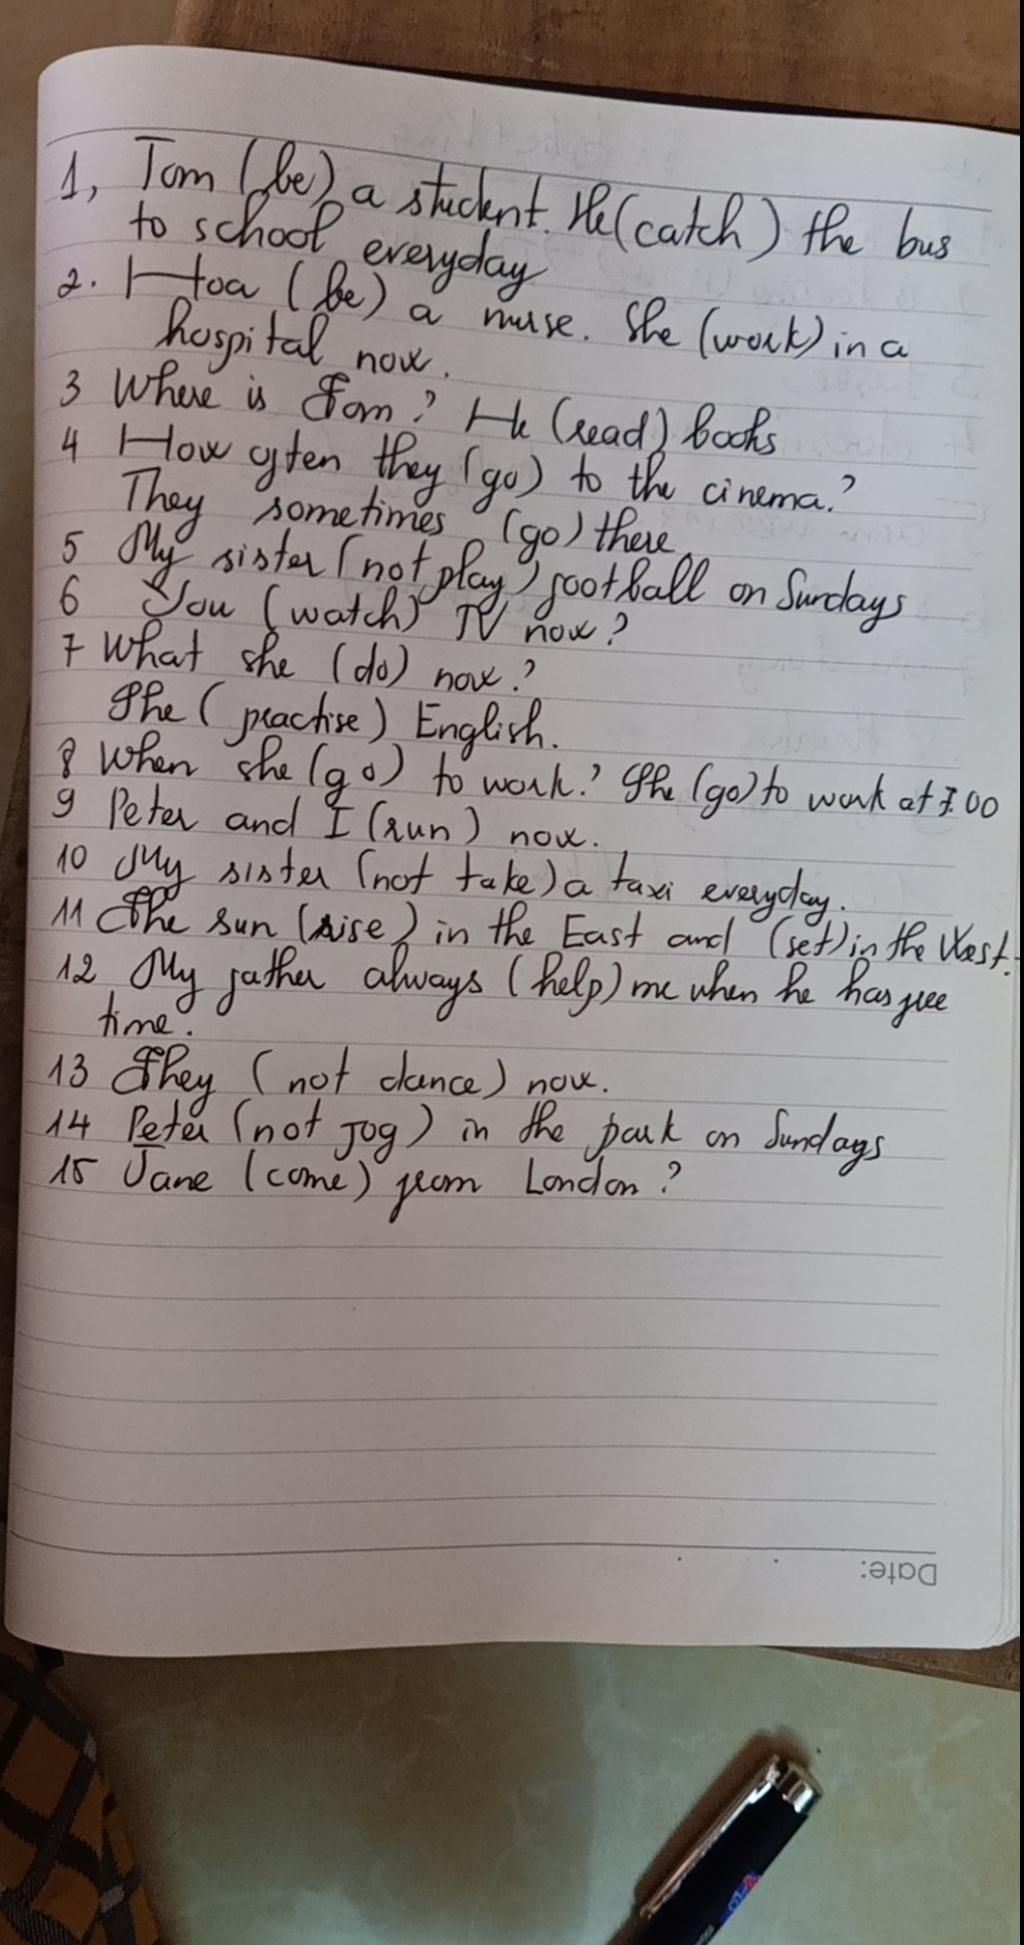 1, Tom (be) a student. He (catch) the bus
to school everyday
2. Hoa (be) a nurse. She (work) in a
hospital now.
3 Where is Tom? He (read) books
4 How often they (go) to the cinema?
They sometimes (go) there
5 My sister (not play) football on Sundays
6 You (watch) TV now?
7 What she (do) now?
She (practise) English.
8 When she (go) to work? She (go) to work at 7.00
9 Peter and I (run) now.
10 My sister (not take) a taxi everyday.
11 The sun (rise) in the East and (set) in the West.
12 My father always (help) me when he has free
time.
13 They (not dance) now.
14 Peter (not jog) in the park on Sundays
15 Jane (come) from London?
Date: